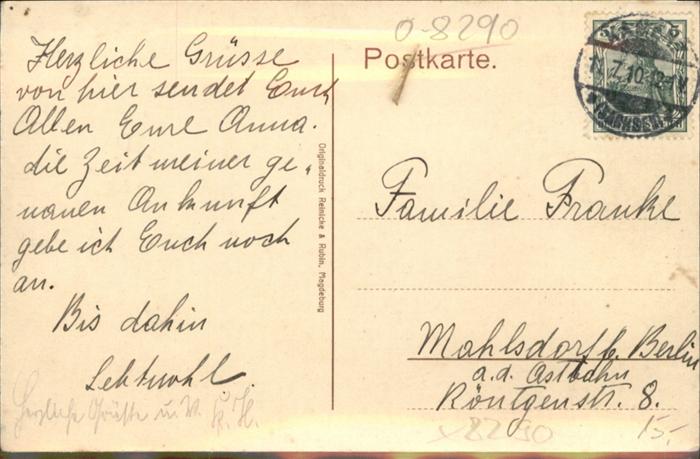 O-8290
Postkarte.
Herzliche Grüsse
von hier sendet Euch
Allen Eure Anna.
die Zeit meiner ge„
nauen Ankunft
gebe ich Euch noch
an.
Bis dahin
Lebtwohl.
Herzliche Grüße u. V.
Originaldruck Reinicke & Rubin, Magdeburg
7.10.
(SACHSEN)
Familie Franke
Mahlsdorf b. Berlin
a.d. Ostbahn
Röntgenstr. 8.
x8290
15,-